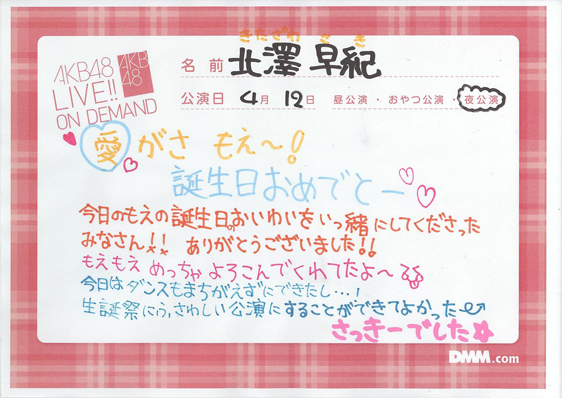 AKB48
LIVE!!
ON DEMAND
AKB
48
きたざわ さき
名前 北澤 早紀
公演日 4月 12日 昼公演・おやつ公演・夜公演
愛がさ もえ〜!
誕生日おめでとー
今日のもえの誕生日。おいわいをいっ緒にしてくださった
みなさん!! ありがとうございました!!
もえもえ めっちゃ よろこんでくれてたよ〜
今日はダンスもまちがえずにできたし…!
生誕祭にふさわしい公演にすることができてよかった
さっきーでした☆
DMM.com